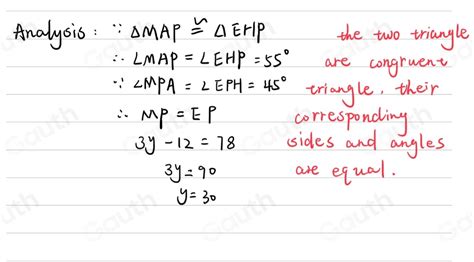 Analysis: ∵ △MAP ≅ △EHP
∴ ∠MAP = ∠EHP = 55°
∵ ∠MPA = ∠EPH = 45°
∴ MP = EP
3y - 12 = 78
3y = 90
y = 30
the two triangle
are congruent
triangle, their
corresponding
sides and angles
are equal.
Gauth